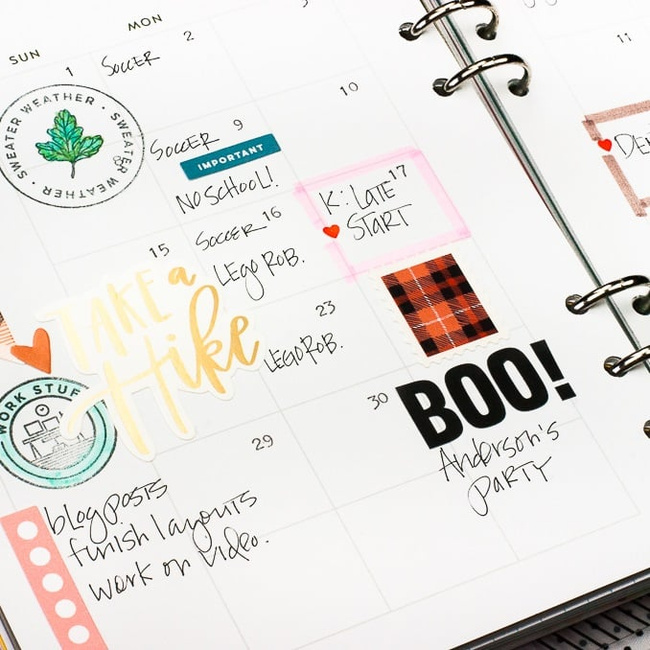 SUN
MON
3
1
SOCCER 2
SWEATER WEATHER • SWEATER WEATHER •
SOCCER 9
IMPORTANT
NO SCHOOL!
10
11
15
SOCCER 16
LEGO ROB.
K: LATE 17
START
TAKE a
Hike
23
LEGO ROB.
WORK STUFF
29
30
BOO!
Anderson's
PARTY
blog posts
finish layouts
work on video.